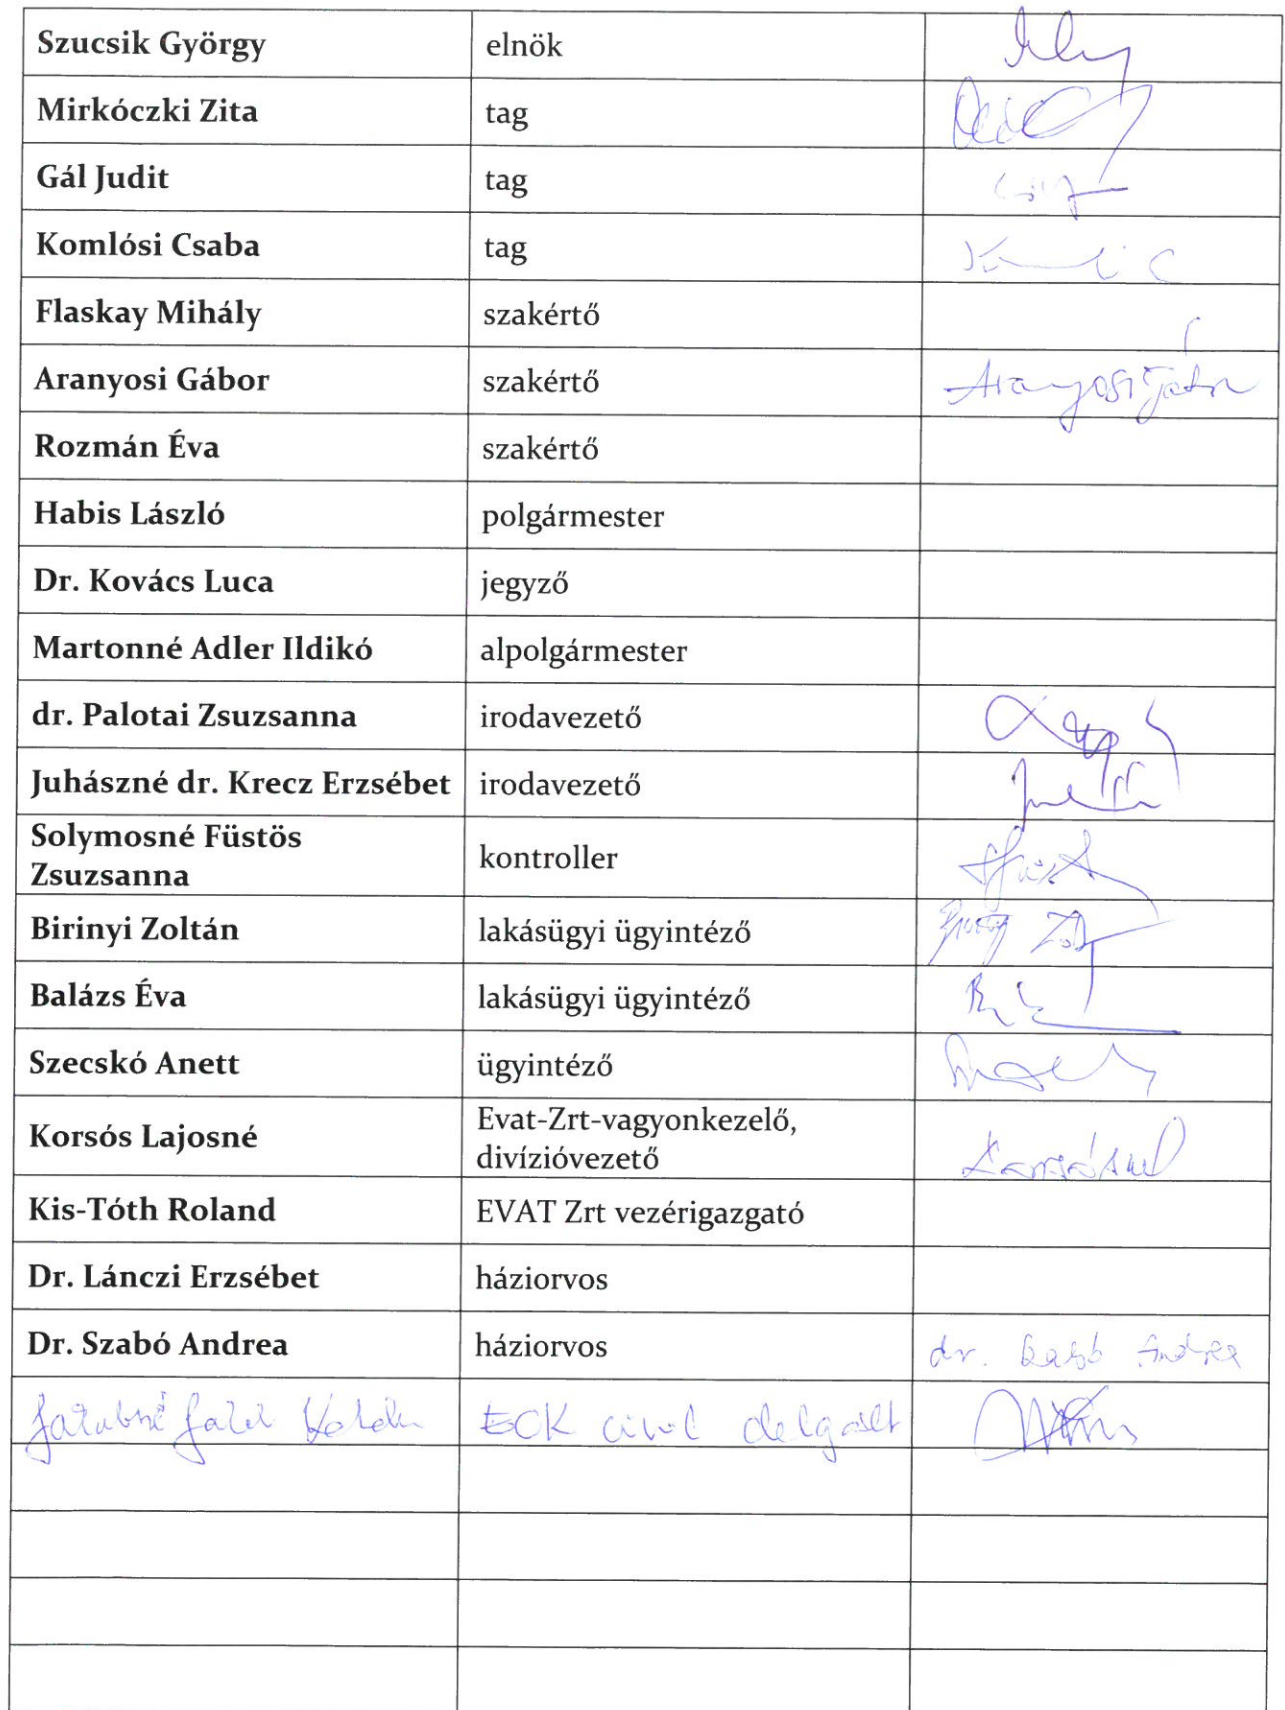 Szucsik György elnök
Mirkóczki Zita tag
Gál Judit tag
Komlósi Csaba tag
Flaskay Mihály szakértő
Aranyosi Gábor szakértő Aranyosi Gábor
Rozmán Éva szakértő
Habis László polgármester
Dr. Kovács Luca jegyző
Martonné Adler Ildikó alpolgármester
dr. Palotai Zsuzsanna irodavezető
Juhászné dr. Krecz Erzsébet irodavezető
Solymosné Füstös
Zsuzsanna kontroller
Birinyi Zoltán lakásügyi ügyintéző
Balázs Éva lakásügyi ügyintéző
Szecskó Anett ügyintéző
Korsós Lajosné Evat-Zrt-vagyonkezelő,
divízióvezető
Kis-Tóth Roland EVAT Zrt vezérigazgató
Dr. Lánczi Erzsébet háziorvos
Dr. Szabó Andrea háziorvos dr. Szabó Andrea
civil